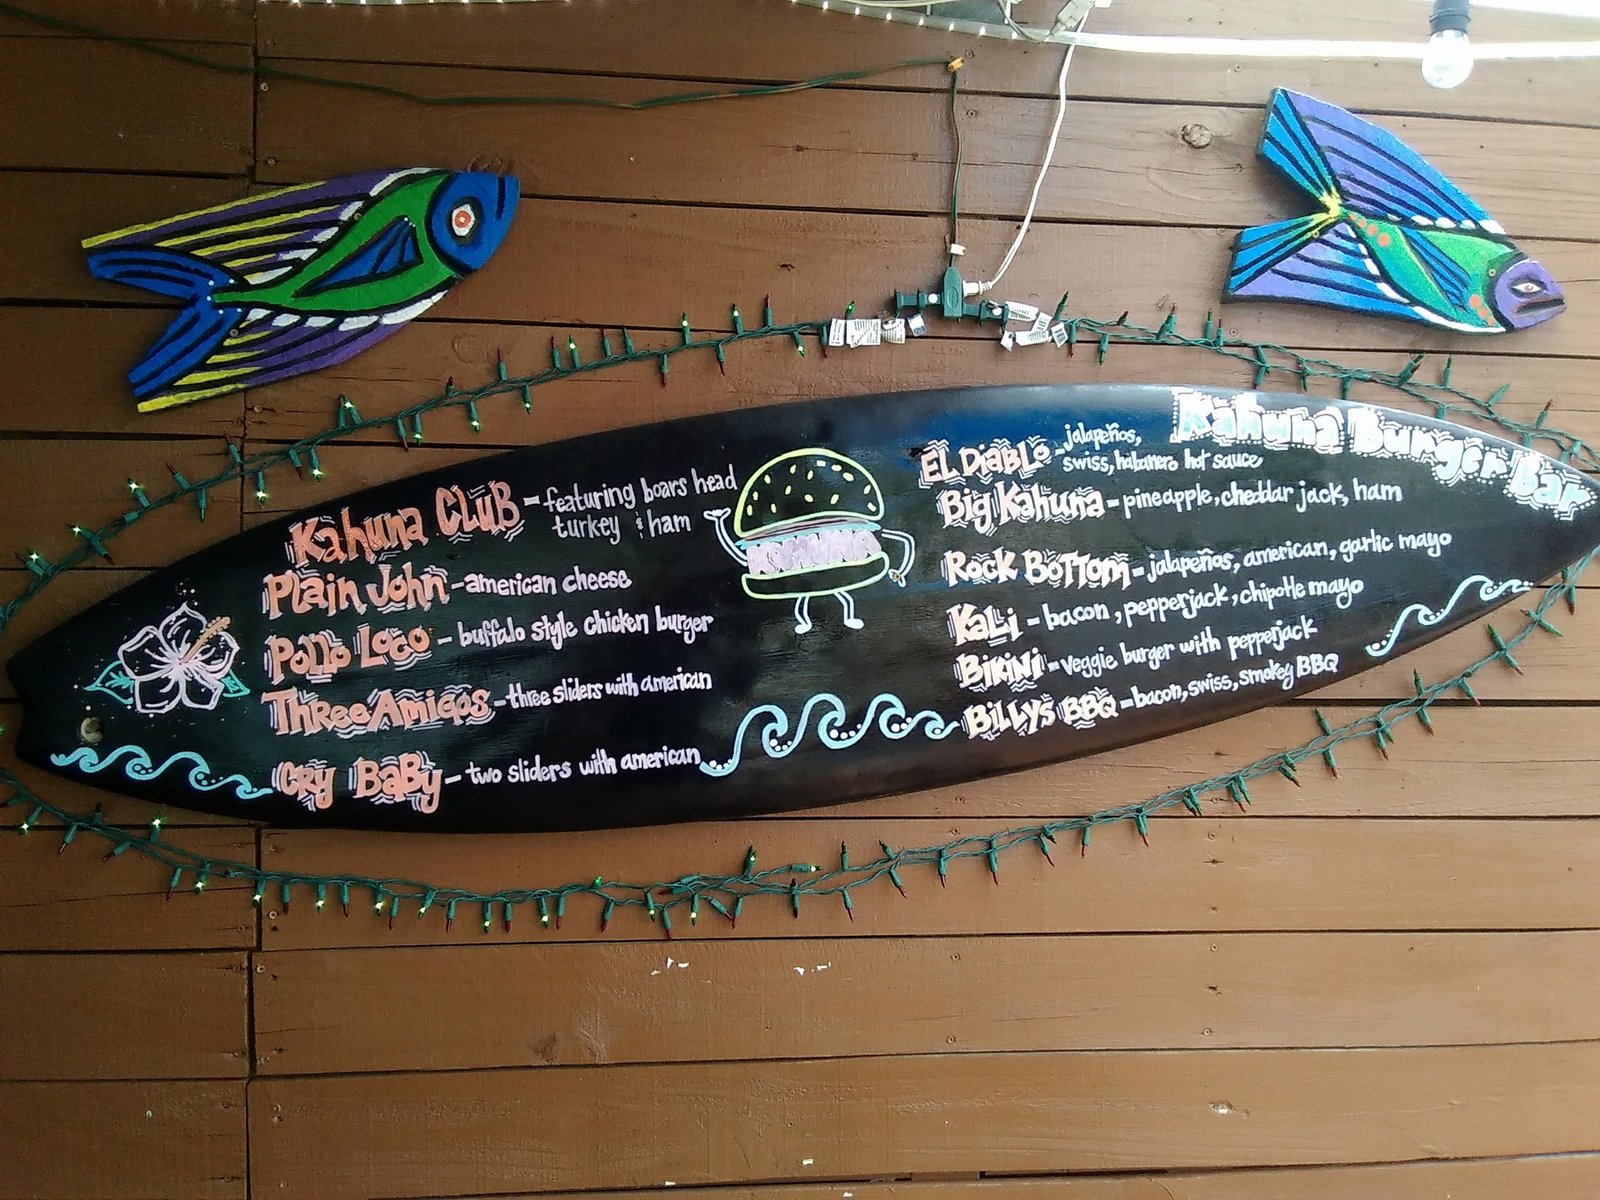 Kahuna Burger Bar
Kahuna CLUB - featuring boars head
turkey & ham
Plain John - american cheese
Pollo Loco - buffalo style chicken burger
Three Amigos - three sliders with american
CRY BaBy - two sliders with american
KAHUNA
EL DiaBLo - jalapeños,
swiss, habanero hot sauce
Big Kahuna - pineapple, cheddar jack, ham
Rock BoTTom - jalapeños, american, garlic mayo
KaLi - bacon, pepperjack, chipotle mayo
BikiNi - veggie burger with pepperjack
BiLLy's BBQ - bacon, swiss, smokey BBQ